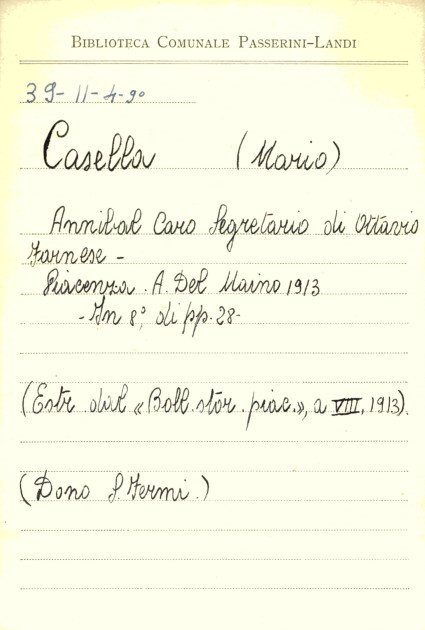 BIBLIOTECA COMUNALE PASSERINI-LANDI
39-11-4-9º
Casella (Mario)
Annibal Caro Segretario di Ottavio
Farnese -
Piacenza. A. Del Maino 1913
- In 8º, di pp. 28-
(Estr. dal « Boll. stor. piac.», a VIII, 1913).
(Dono S. Fermi.)